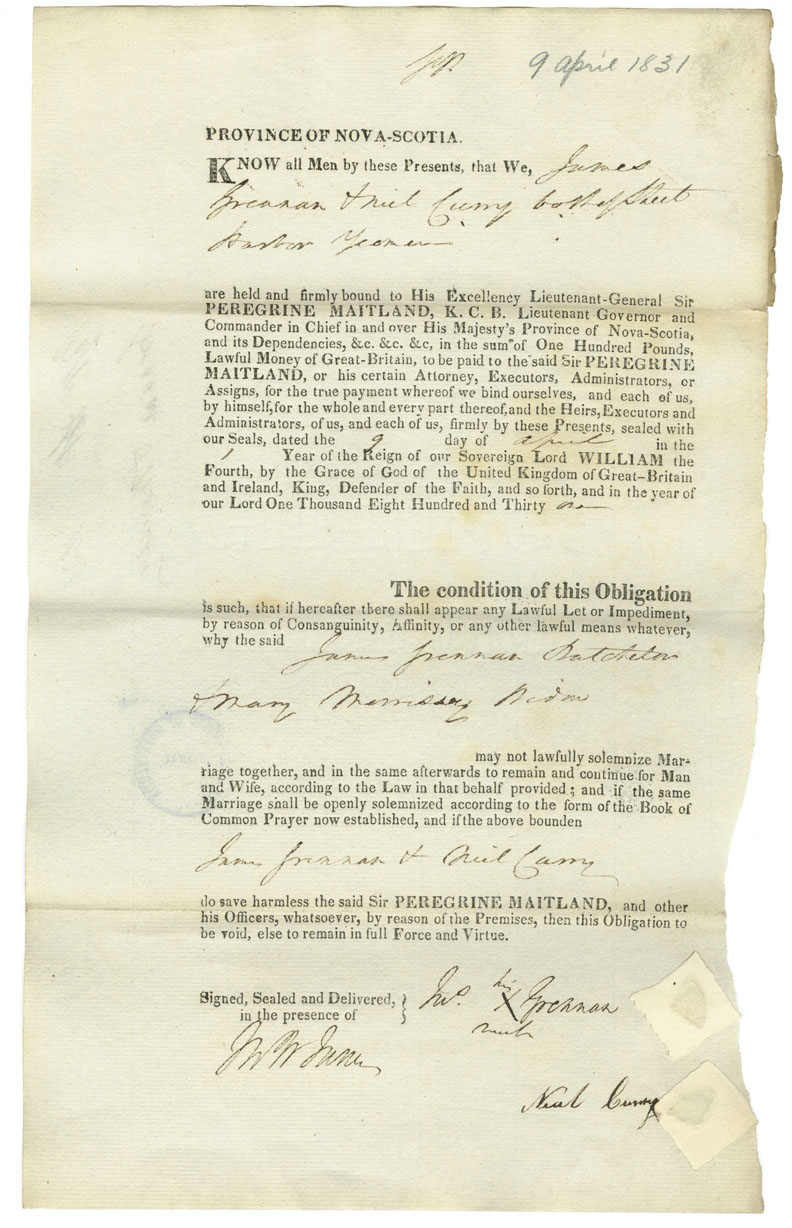 9 april 1831
PROVINCE OF NOVA-SCOTIA.
KNOW all Men by these Presents, that We, James
Grennan & Neil Curry both of Sheet
Harbor Yeomen
are held and firmly bound to His Excellency Lieutenant-General Sir
PEREGRINE MAITLAND, K. C. B. Lieutenant Governor and
Commander in Chief in and over His Majesty's Province of Nova-Scotia,
and its Dependencies, &c. &c. &c, in the sum of One Hundred Pounds,
Lawful Money of Great-Britain, to be paid to the said Sir PEREGRINE
MAITLAND, or his certain Attorney, Executors, Administrators, or
Assigns, for the true payment whereof we bind ourselves, and each of us,
by himself, for the whole and every part thereof, and the Heirs, Executors and
Administrators, of us, and each of us, firmly by these Presents, sealed with
our Seals, dated the 9 day of april in the
1 Year of the Reign of our Sovereign Lord WILLIAM the
Fourth, by the Grace of God of the United Kingdom of Great-Britain
and Ireland, King, Defender of the Faith, and so forth, and in the year of
our Lord One Thousand Eight Hundred and Thirty one
The condition of this Obligation
is such, that if hereafter there shall appear any Lawful Let or Impediment,
by reason of Consanguinity, Affinity, or any other lawful means whatever,
why the said James Grennan Batchelor
& Mary Morrissey Widow
may not lawfully solemnize Mar-
riage together, and in the same afterwards to remain and continue for Man
and Wife, according to the Law in that behalf provided; and if the same
Marriage shall be openly solemnized according to the form of the Book of
Common Prayer now established, and if the above bounden
James Grennan & Neil Curry
do save harmless the said Sir PEREGRINE MAITLAND, and other
his Officers, whatsoever, by reason of the Premises, then this Obligation to
be void, else to remain in full Force and Virtue.
Signed, Sealed and Delivered,
in the presence of
Jas. his X Grennan
mark
Neal Curry